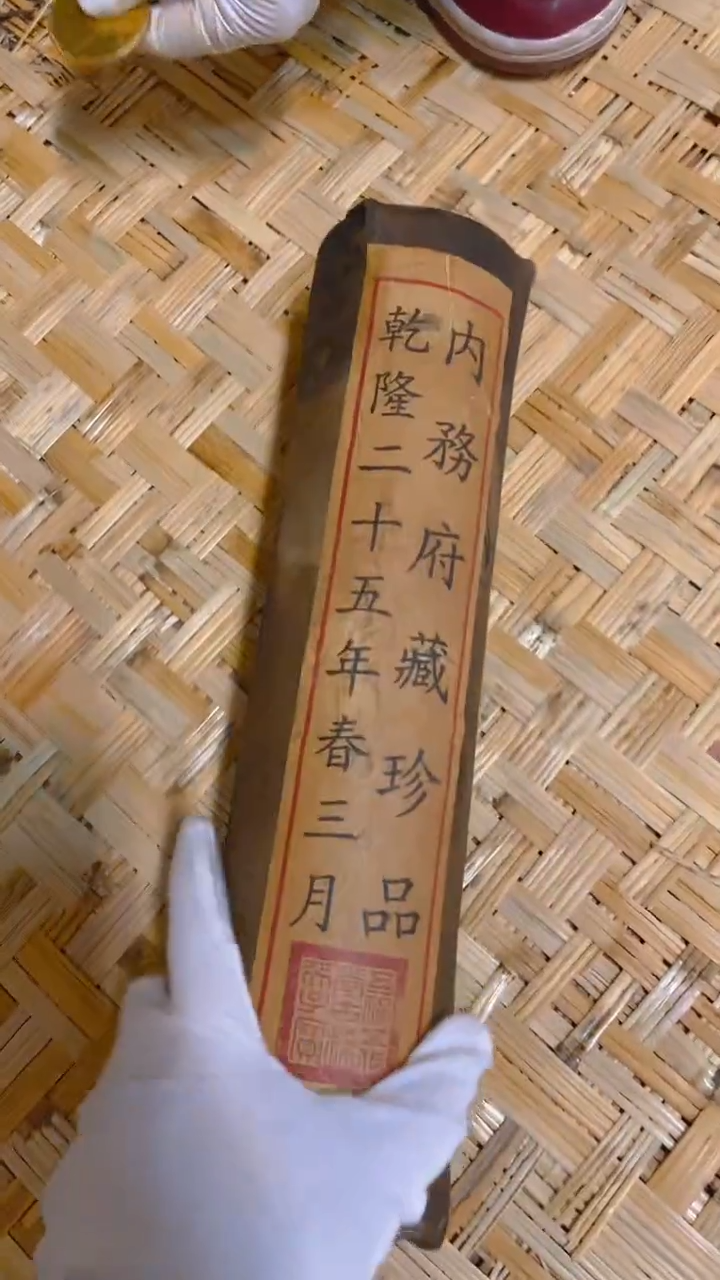 内務府藏珍品
乾隆二十五年春三月